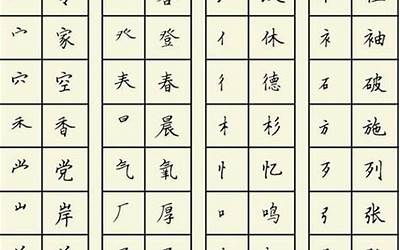 宀 家 癶 登 亻 休 衤 袖
穴 空 𡗗 春 彳 德 石 破
禾 香 日 晨 木 杉 方 施
党 气 氧 忄 忆 歹 列
山 岸 厂 厚 口 鸣 弓 张